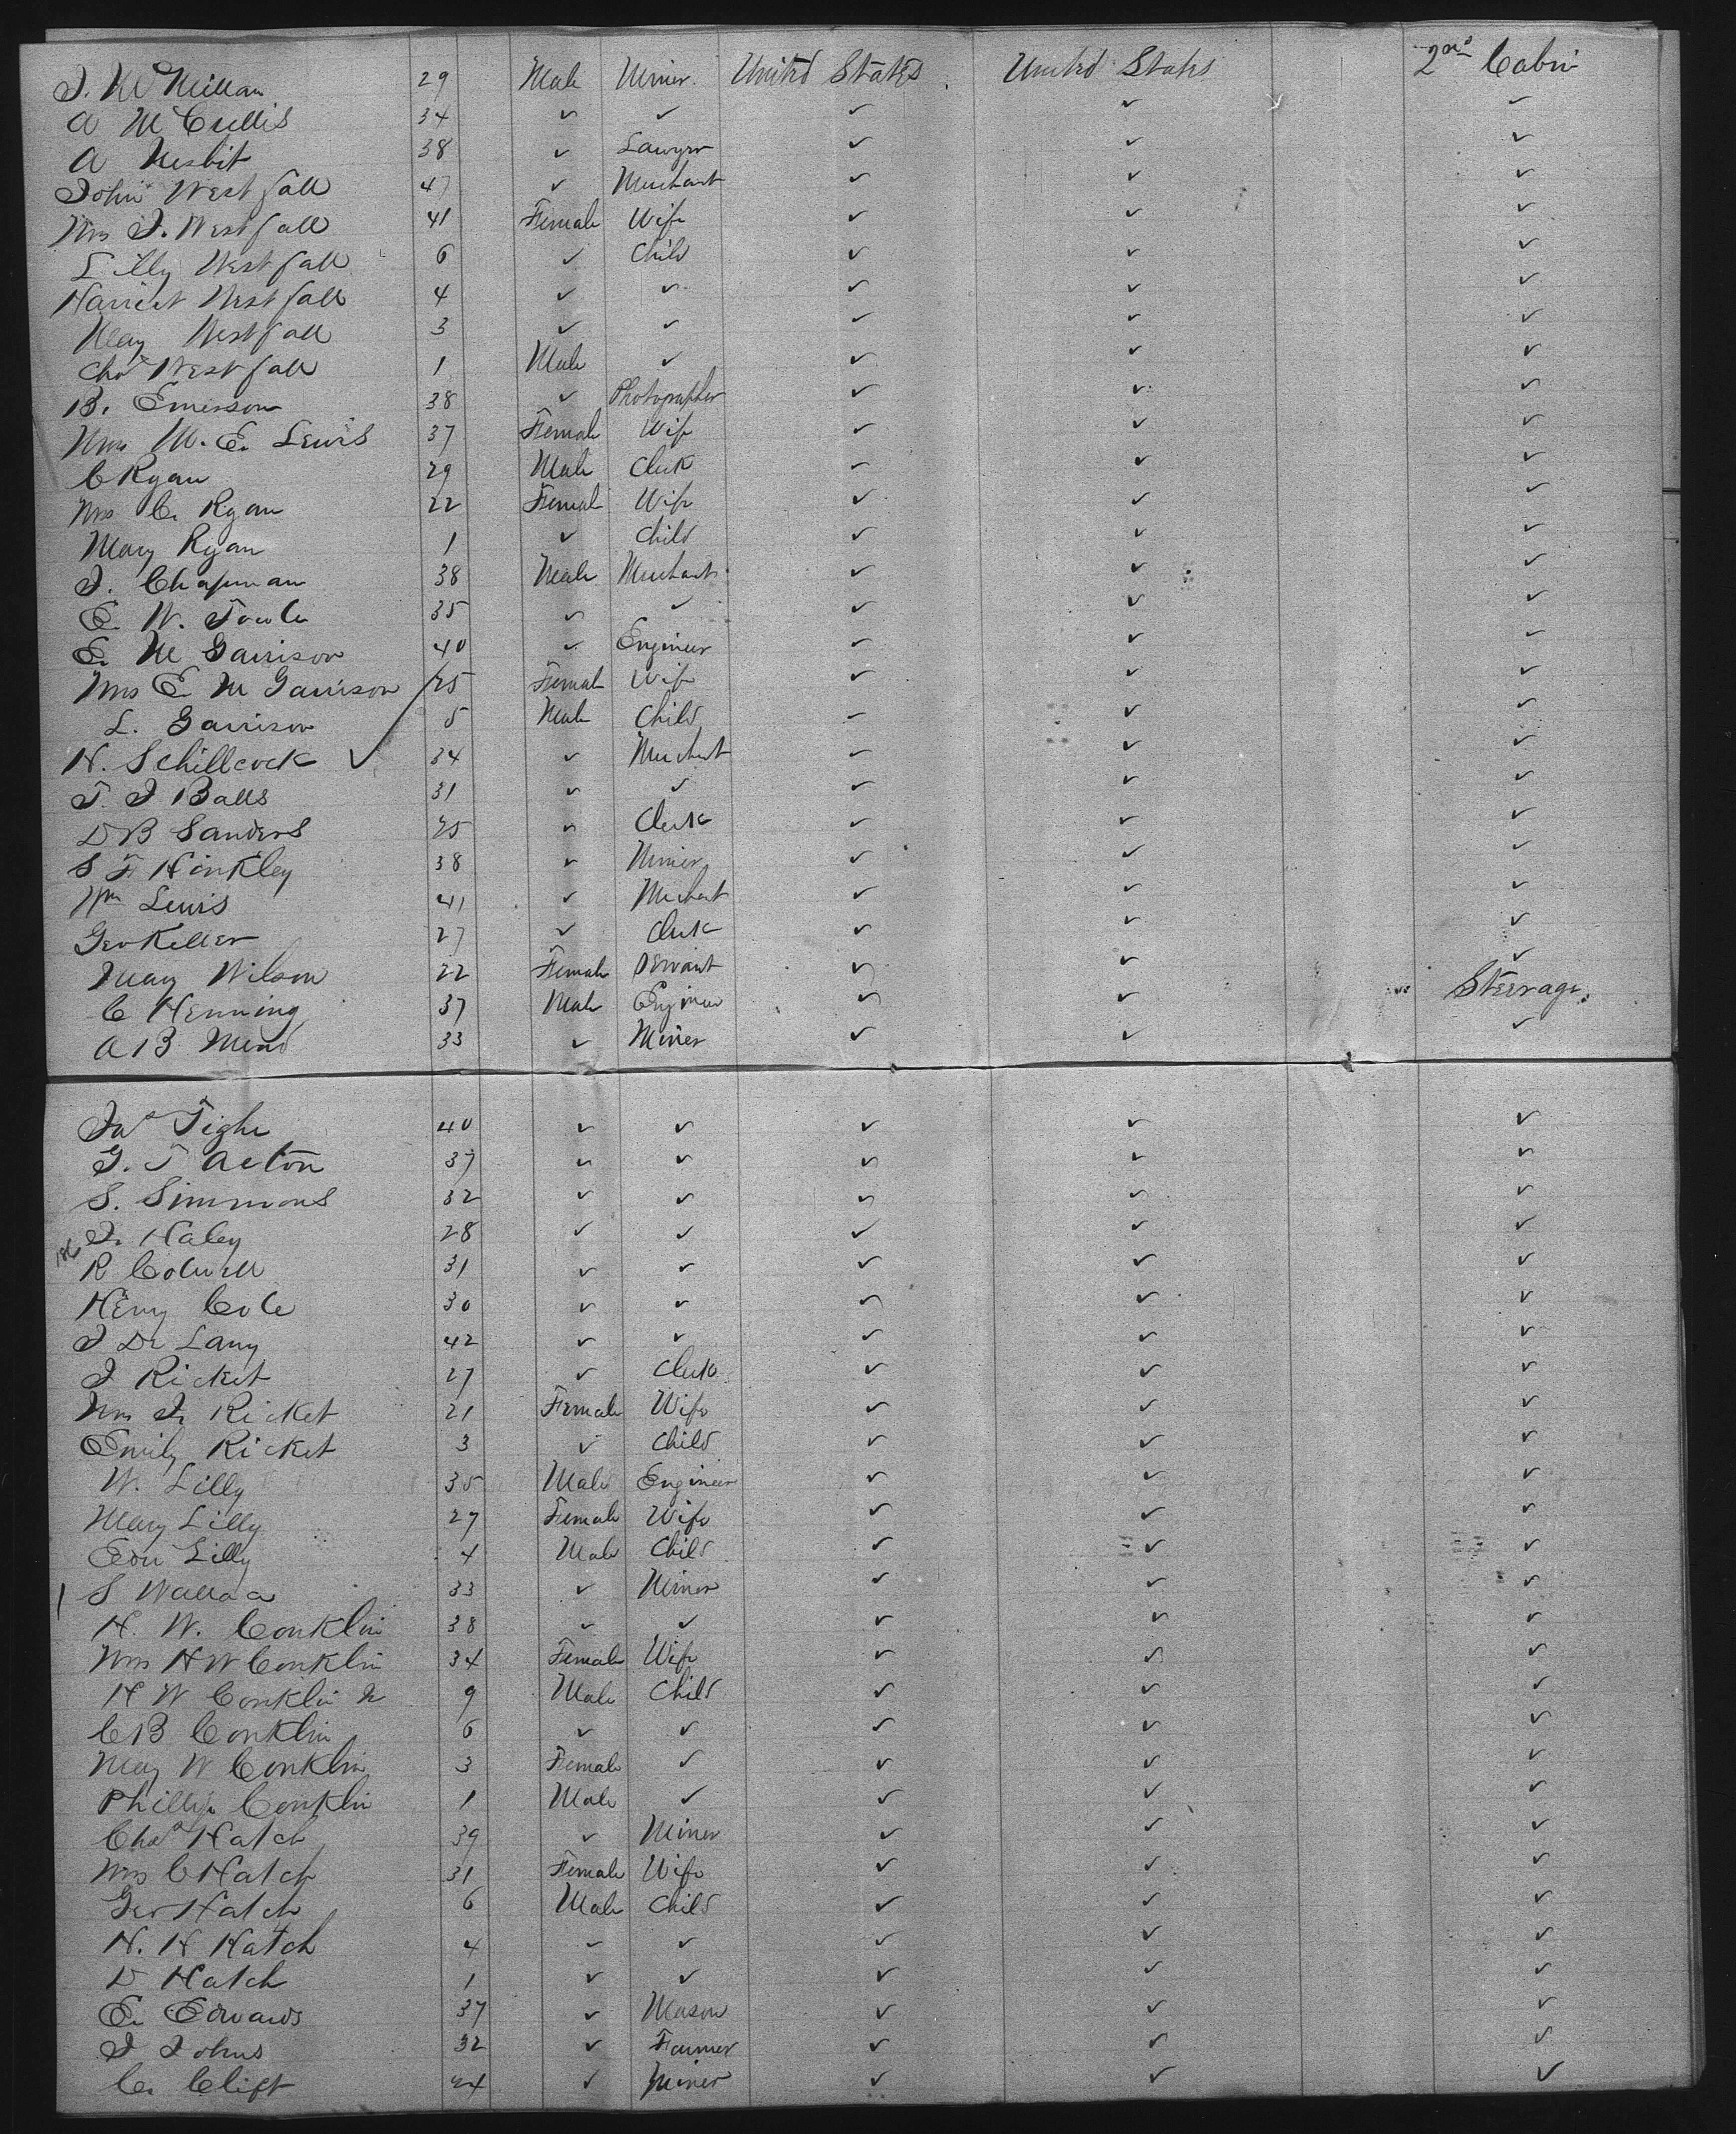 J. McMillan 29 Male Miner United States United States 2nd Cabin
A McCrellis 34 ✓ ✓ ✓ ✓ ✓
A Nesbit 38 ✓ Lawyer ✓ ✓ ✓
John Westfall 47 ✓ Merchant ✓ ✓ ✓
Mrs J. Westfall 41 Female Wife ✓ ✓ ✓
Lilly Westfall 6 ✓ Child ✓ ✓ ✓
Harriet Westfall 4 ✓ ✓ ✓ ✓ ✓
May Westfall 3 ✓ ✓ ✓ ✓ ✓
Chas Westfall 1 Male ✓ ✓ ✓ ✓
B. Emerson 38 ✓ Photographer ✓ ✓ ✓
Mrs M. E. Lewis 37 Female Wife ✓ ✓ ✓
C Ryan 29 Male Clerk ✓ ✓ ✓
Mrs C. Ryan 22 Female Wife ✓ ✓ ✓
Mary Ryan 1 ✓ Child ✓ ✓ ✓
J. Chapman 38 Male Merchant ✓ ✓ ✓
E. W. Towle 35 ✓ ✓ ✓ ✓ ✓
E. M Garrison 40 ✓ Engineer ✓ ✓ ✓
Mrs E M Garrison 25 Female Wife ✓ ✓ ✓
L. Garrison 5 Male Child ✓ ✓ ✓
H. Schillcock ✓ 34 ✓ Merchant ✓ ✓ ✓
T. J Balls 31 ✓ ✓ ✓ ✓ ✓
D B Sanders 25 ✓ Clerk ✓ ✓ ✓
S F Hinkley 38 ✓ Miner ✓ ✓ ✓
Wm Lewis 41 ✓ Merchant ✓ ✓ ✓
Geo Keller 27 ✓ Clerk ✓ ✓ ✓
Mary Wilson 22 Female Servant ✓ ✓ ✓
C Henning 37 Male Engineer ✓ ✓ Steerage.
A B Mead 33 ✓ Miner ✓ ✓ ✓
Jas Tighe 40 ✓ ✓ ✓ ✓ ✓
G. T Acton 37 ✓ ✓ ✓ ✓ ✓
S. Simmons 32 ✓ ✓ ✓ ✓ ✓
J. Haley 28 ✓ ✓ ✓ ✓ ✓
R Colwell 31 ✓ ✓ ✓ ✓ ✓
Henry Cole 30 ✓ ✓ ✓ ✓ ✓
J De Lany 42 ✓ ✓ ✓ ✓ ✓
J Ricket 27 ✓ Clerk ✓ ✓ ✓
Mrs J. Ricket 21 Female Wife ✓ ✓ ✓
Emily Ricket 3 ✓ Child ✓ ✓ ✓
W. Lilly 35 Male Engineer ✓ ✓ ✓
Mary Lilly 27 Female Wife ✓ ✓ ✓
Edw Lilly 4 Male Child ✓ ✓ ✓
S Wallace 33 ✓ Miner ✓ ✓ ✓
H. W. Conklin 38 ✓ ✓ ✓ ✓ ✓
Mrs H W Conklin 34 Female Wife ✓ ✓ ✓
H W Conklin Jr 9 Male Child ✓ ✓ ✓
C B Conklin 6 ✓ ✓ ✓ ✓ ✓
May W Conklin 3 Female ✓ ✓ ✓ ✓
Phillip Conklin 1 Male ✓ ✓ ✓ ✓
Chas Hatch 39 ✓ Miner ✓ ✓ ✓
Mrs C Hatch 31 Female Wife ✓ ✓ ✓
Geo Hatch 6 Male Child ✓ ✓ ✓
H. H Hatch 4 ✓ ✓ ✓ ✓ ✓
D Hatch 1 ✓ ✓ ✓ ✓ ✓
E. Edwards 37 ✓ Mason ✓ ✓ ✓
J Johns 32 ✓ Farmer ✓ ✓ ✓
C. Clift 24 ✓ Miner ✓ ✓ ✓